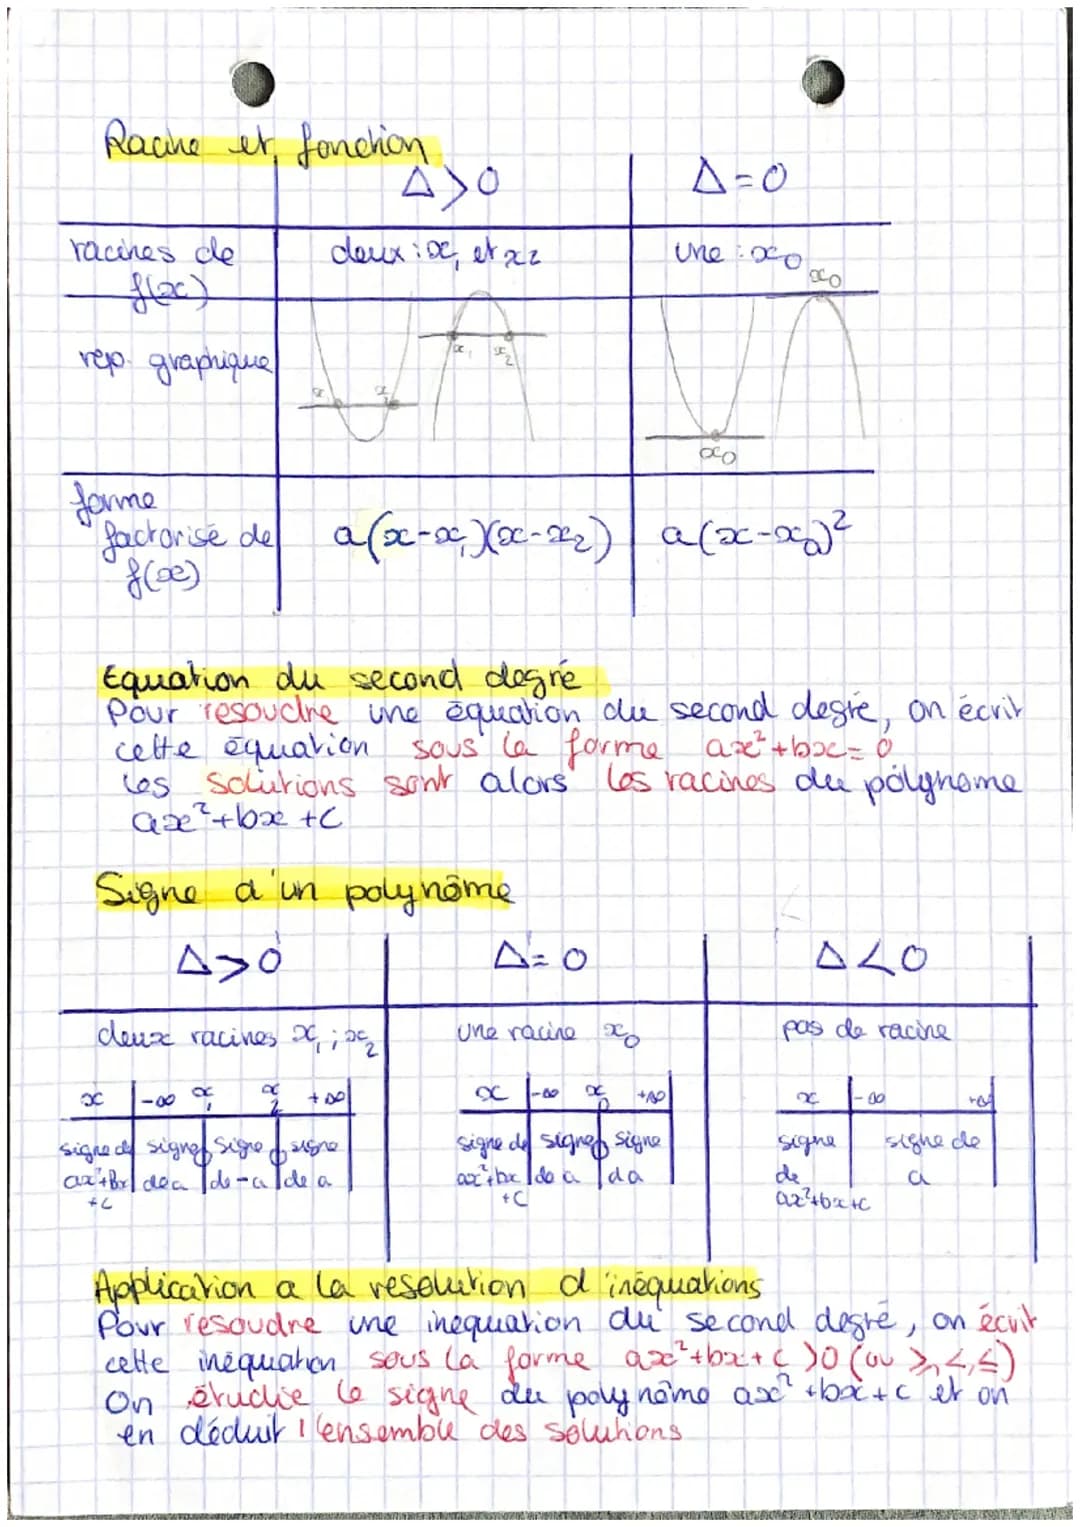 Racine et fonction
Δ>0 Δ=0
racines de f(x) deux : x₁ et x2 une : x0
x0
rep. graphique x₁ x₂ x₁ x₂
x0
forme factorisé de f(x) a(x-x₁)(x-x₂) a(x-x₀)²
Equation du second degré
Pour resoudre une équation du second degré, on écrit
cette équation sous la forme ax²+bx=0
Les solutions sont alors les racines du polynome
ax²+bx+c
Signe d'un polynôme
Δ>0 Δ=0 Δ<0
deux racines x₁ ; x₂ une racine x₀ pas de racine
x -∞ x₁ x₂ +∞ x -∞ x₀ +∞ x -∞ +∞
signe de signe 0 signe 0 signe signe de signe 0 signe signe signe de
ax²+bx de a de -a de a ax²+bx de a da de a
+c +c ax²+bx+c
Application a la resolution d'inéquations
Pour resoudre une inequation du second degré, on écrit
cette inéquation sous la forme ax²+bx+c >0 (ou ≥,<,≤)
On étudie le signe du polynôme ax²+bx+c et on
en déduit l'ensemble des solutions